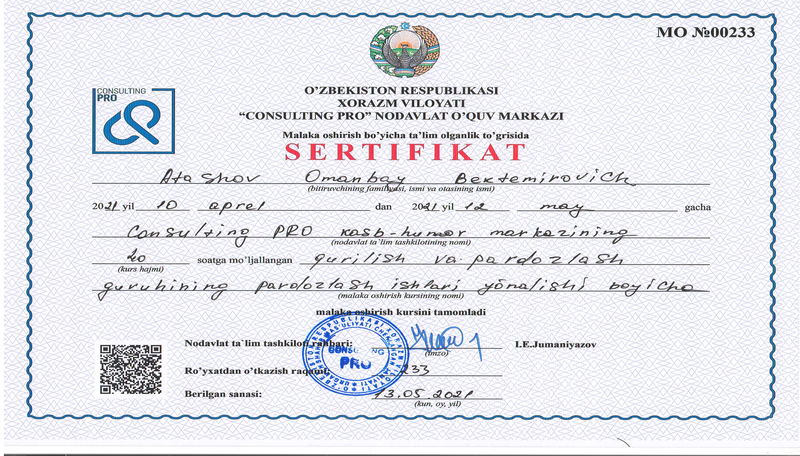 MO №00233
CONSULTING
PRO
O'ZBEKISTON RESPUBLIKASI
XORAZM VILOYATI
“CONSULTING PRO” NODAVLAT O'QUV MARKAZI
Malaka oshirish bo'yicha ta'lim olganlik to'grisida
SERTIFIKAT
Atashov Omanbay Bektemirovich
(bitiruvchining familyasi, ismi va otasining ismi)
2021 yil 10 aprel dan 2021 yil 12 may gacha
Consulting PRO kasb-hunar markazining
(nodavlat ta`lim tashkilotining nomi)
20 soatga mo'ljallangan qurilish va pardozlash
(kurs hajmi)
guruhining pardozlash ishlari yónalishi boyicha
(malaka oshirish kursining nomi)
malaka oshirish kursini tamomladi
Nodavlat ta`lim tashkiloti rahbari: I.E.Jumaniyazov
(imzo)
CONSULTING
PRO
Ro'yxatdan o'tkazish raqami: 233
Berilgan sanasi: 13.05.2021
(kun, oy, yil)